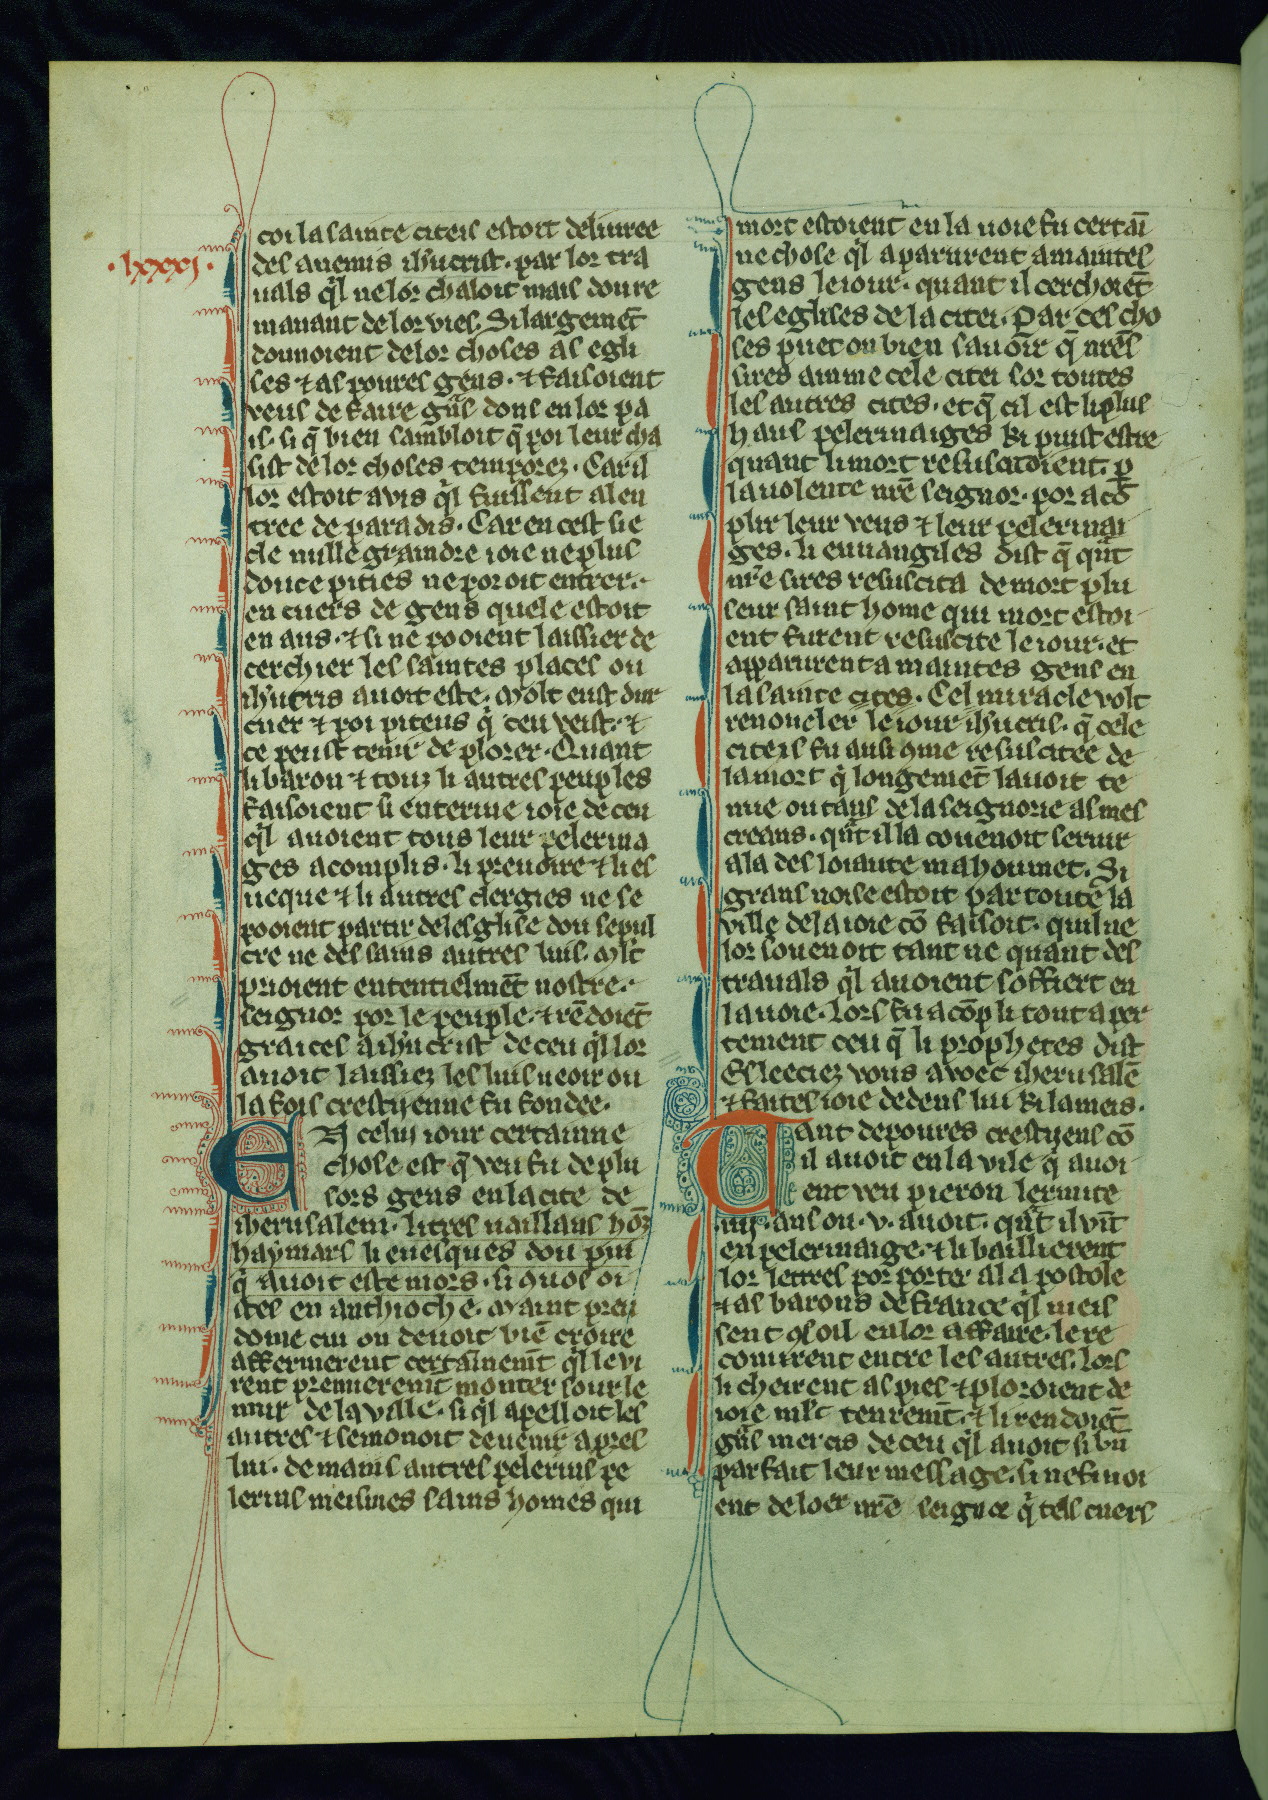 ·lxxxj·
coi la sainte citeis estoit deliuree
des anemis ihūcrist· par lor tra
uals q̾l ne lor chaloit mais doure
manant de lor vies. Si largemēt
donnoient de lor choses as egli
ses ⁊ as poures gens· ⁊ faisoient
veus de faire gn̄s dons en lor pa
is· si q̄ bien sambloit q̄ poi leur cha
sist de lor choses temporez· Car il
lor estoit avis q̾l fuissent a len
tree de paradis. Car en cest sie
cle nulle graindre ioie ne plus
douce pities ne poroit entrer·
en cuers de gens quele estoit
en aus· ⁊ si ne pooient laissier de
cerchier les saintes places ou
ihūcris auoit este. Molt eust dur
cuer ⁊ poi piteus q̾ ceu veist· ⁊
ce peust tenir de plorer· Quant
li baron ⁊ touz li autres peuples
faisoient si enterine ioie de ceu
q̾l auoient tous leur pelerina
ges acomplis· li prendre ⁊ li es
ueque ⁊ li autres clergies ne se
pooient partir de lesglise dou sepul
cre ne des sains autres luis. Mlt
prioient ententielmēt nostre·
seignor por le peuple· ⁊ rēdoiēt
graices a ihūcrist de ceu q̾l lor
auoit laissiez les luis ueoir ou
la fois crestyenne fu fondee·
En celui iour certainne
chose est q̄ veu fu de plu
sors gens en la cite de
iherusalem· li tres uaillans hōz
haymars li euesques dou pui
q̾ auoit este mors· si q̾ uos oi
stes en anthioche. Maint preu
dome cui on deuoit biē croire
affermerent certainemt̄ q̾l le vi
rent premieremt̄ monter sour le
mur de la ville· si q̾l apelloit les
autres ⁊ semonoit de uenir apres
lui· de mains autres pelerins pe
lerins meismes sains homes qui
mort estoient en la uoie fu certaī
ne chose q̾l aparurent a maintes
gens le iour· quant il cerchoiēt
les eglises de la citei. Par ces cho
ses puet on bien sauoir q̄ nr̄es
sires amme cele citei sor toutes
les autres cites· et q̄ cil est li plus
haus pelerinaiges ki puist estre
quant li mort resuscitoient· p̱
la uolente nr̄e seignor· por acō
plir leur veus ⁊ leur pelerinai
ges· li euuangiles dist q̄ qn̄t
nr̄e sires resuscita de mort plu
seur saint home qui mort estoi
ent furent resuscite le iour· et
apparurent a maintes gens en
la sainte cites. Cel miracle volt
renoueler le iour ihūcris· q̄ cele
citeis fu ausi cōme resuscitee de
la mort q̾ longemēt lauoit te
nue ou tans de la seignorie as mes
creans· qn̄t il la couenoit seruir
a la desloiaute mahoumet. Si
grans noise estoit par toute la
ville de la ioie cō faisoit· quil ne
lor souenoit tant ne quant des
trauals q̾l auoient soffiert en
la uoie· lors fu acōpli tout aper
tement ceu q̄ li prophetes dist
Esleeciez vous avoec iherusalē
⁊ faites ioie dedens lui ki lameis·
Tant de poures crestyens cō
il auoit en la vile q̾ auoi
ent veu pieron lermite
·iiij· ans ou ·v· auoit· qn̄t il vīt
en pelerinaige· ⁊ li baillierent
lor lettres por porter al apostole
⁊ as barons de france q̾l meis
sent ꝯsoil en lor affaire· le re
conurent entre les autres. lors
li cheirent as pies ⁊ ploroient de
ioie mlt̄ tenremt̄· ⁊ li rendoiēt
gn̄s mercis de ceu q̾l auoit si biē
parfait leur message· si ne finoi
ent de loer nr̄e seignor q̾ tels cuers